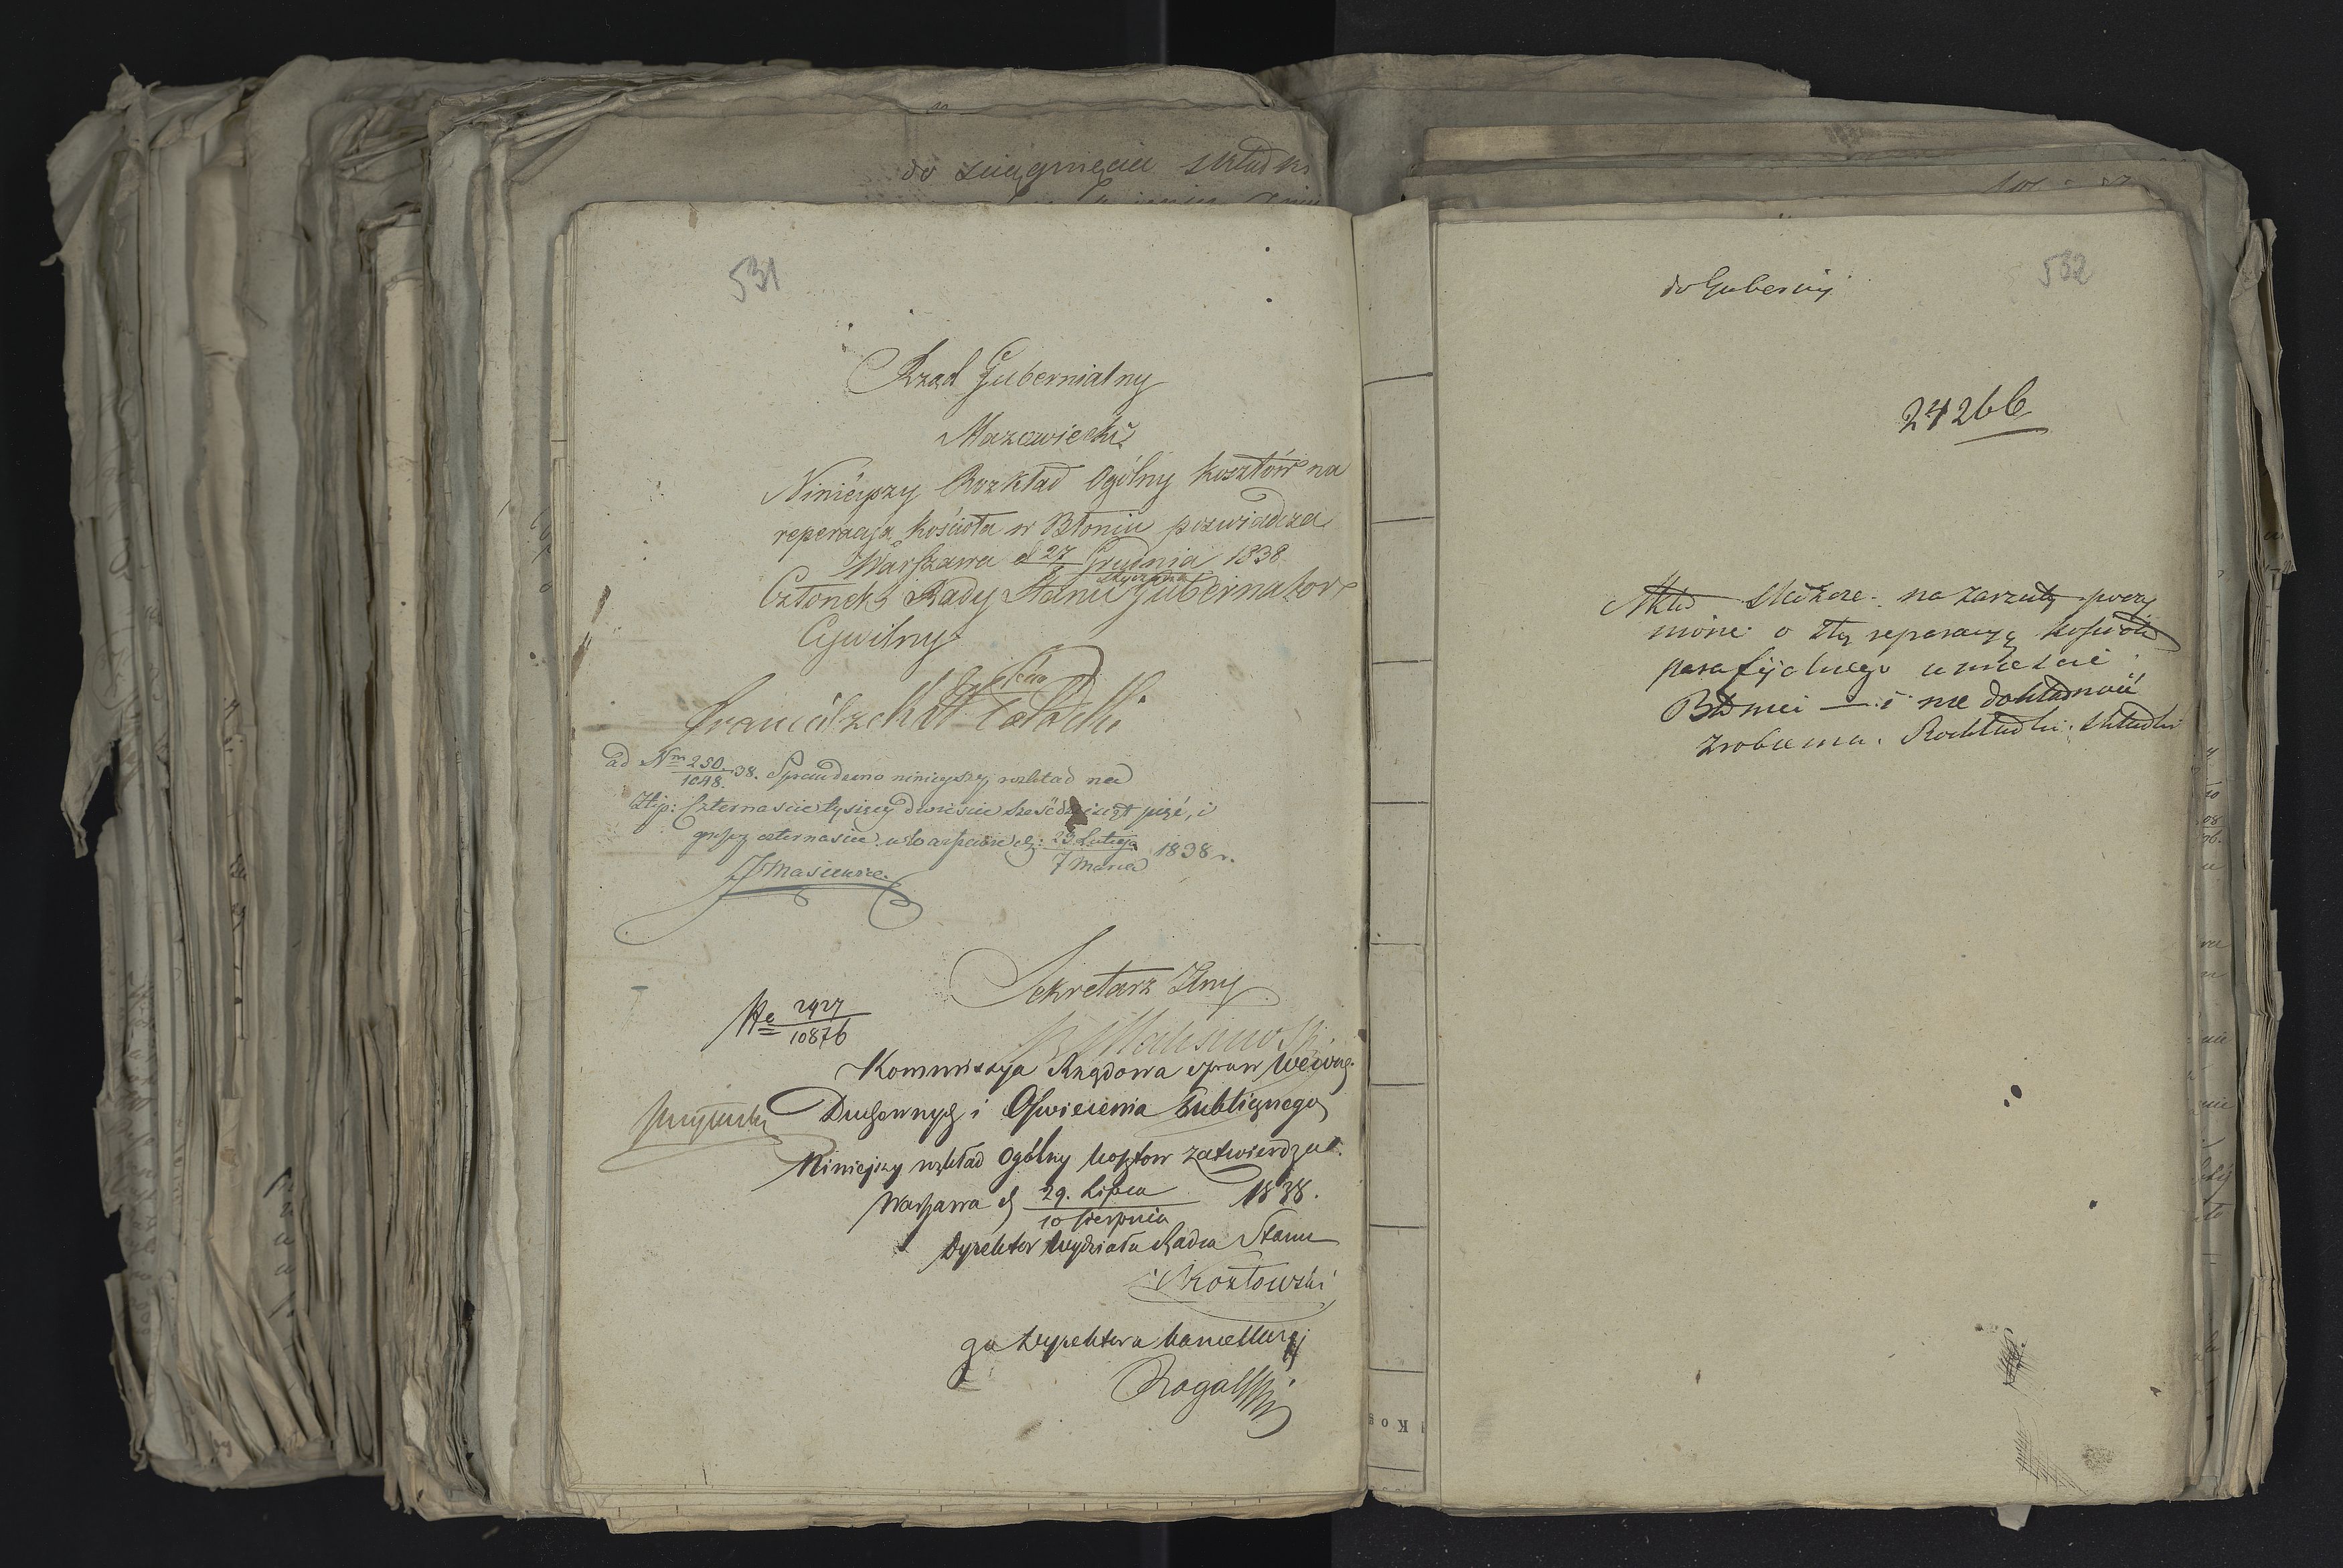 do sciągnięcia składki
531
Rząd Gubernialny
Mazowiecki
Ninieyszy Rozkład Ogólny kosztów na
reperacją kościoła w Błoniu poświadcza
Warszawa d 27 Grudnia 1838
Stycznia
Członek Rady Stanu Gubernator
Cywilny
ad Nm 250/1048 38. Sprawdzono ninieyszy rozkład na
Złp: Czternaście tysięcy dwieście sześćdziesiąt pięć, i
groszy czternaście w Warszawie d: 23 Lutego 1838 r.
7 Marca
Sekretarz Jlny
No 2427/10876
Kommissya Rządowa spraw Wewng.
Duchownych i Oświecenia Publicznego
Niniejszy rozkład ogólny kosztów zatwierdza.
Warszawa d 29. Lipca 1838.
10 Sierpnia
Dyrektor Wydziału Radca Stanu
Kozłowski
za Dyrektora Kancellaryi
Rogalski
532
do Gubernij
24266
na zarzuty poczy
nione o złą reparacyą kościoła
parafijalnego w mieście
Błoniu — i nie dokładność
zrobienia Rozkładu składki